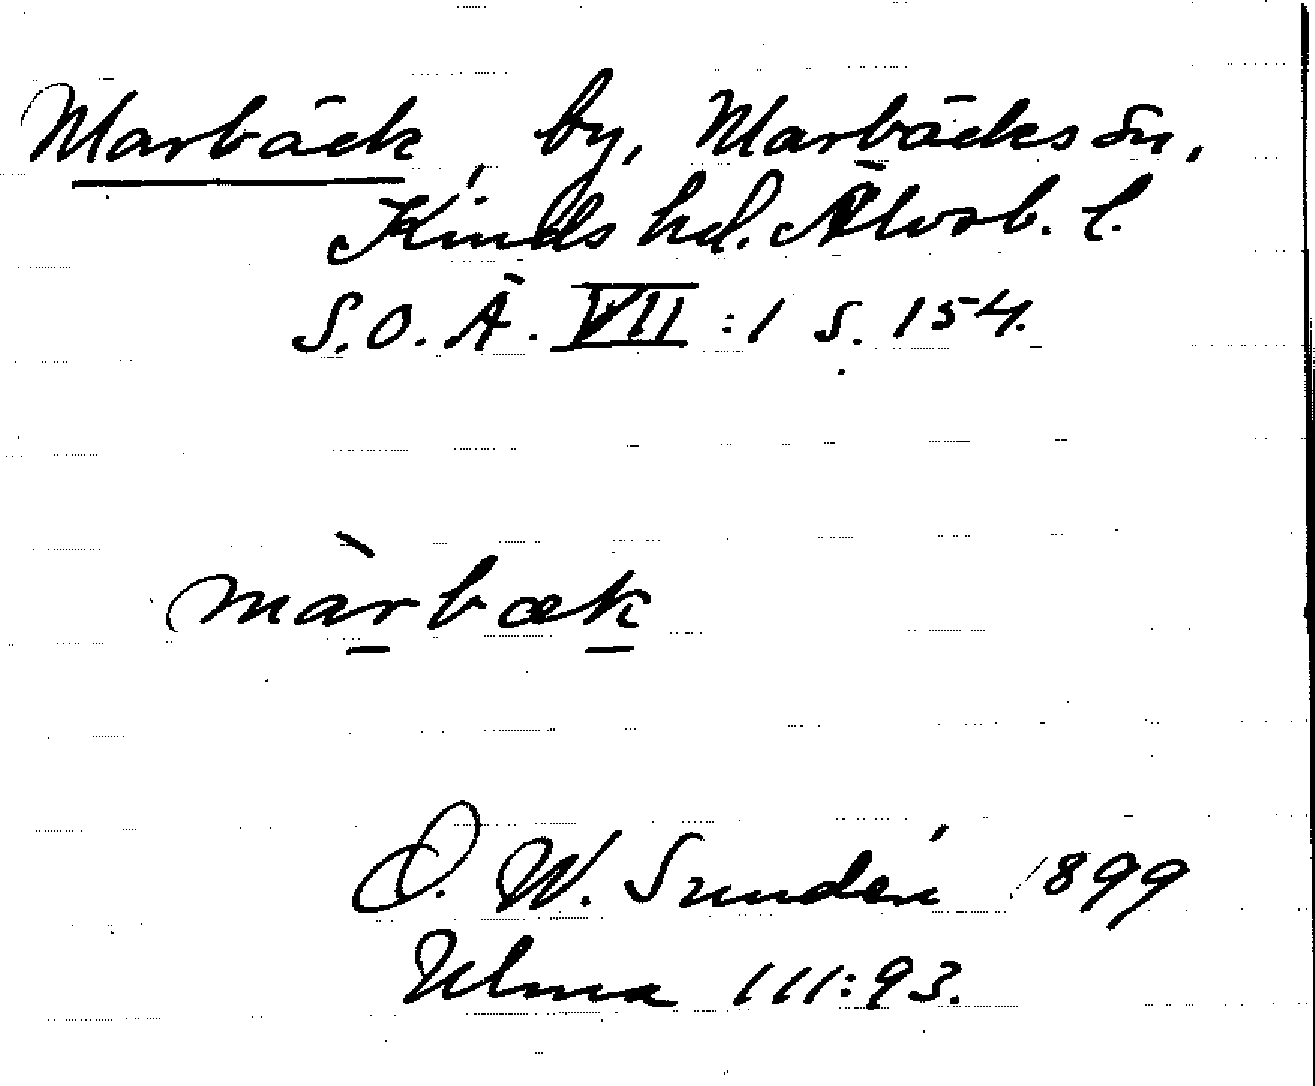 Marbäck, by, Marbäcks sn,
Kinds hd. Älvsb. l.
S.O.Ä. VII:1 s. 154.
màrbæk
D. W. Sundén 1899
Ulma 111:93.